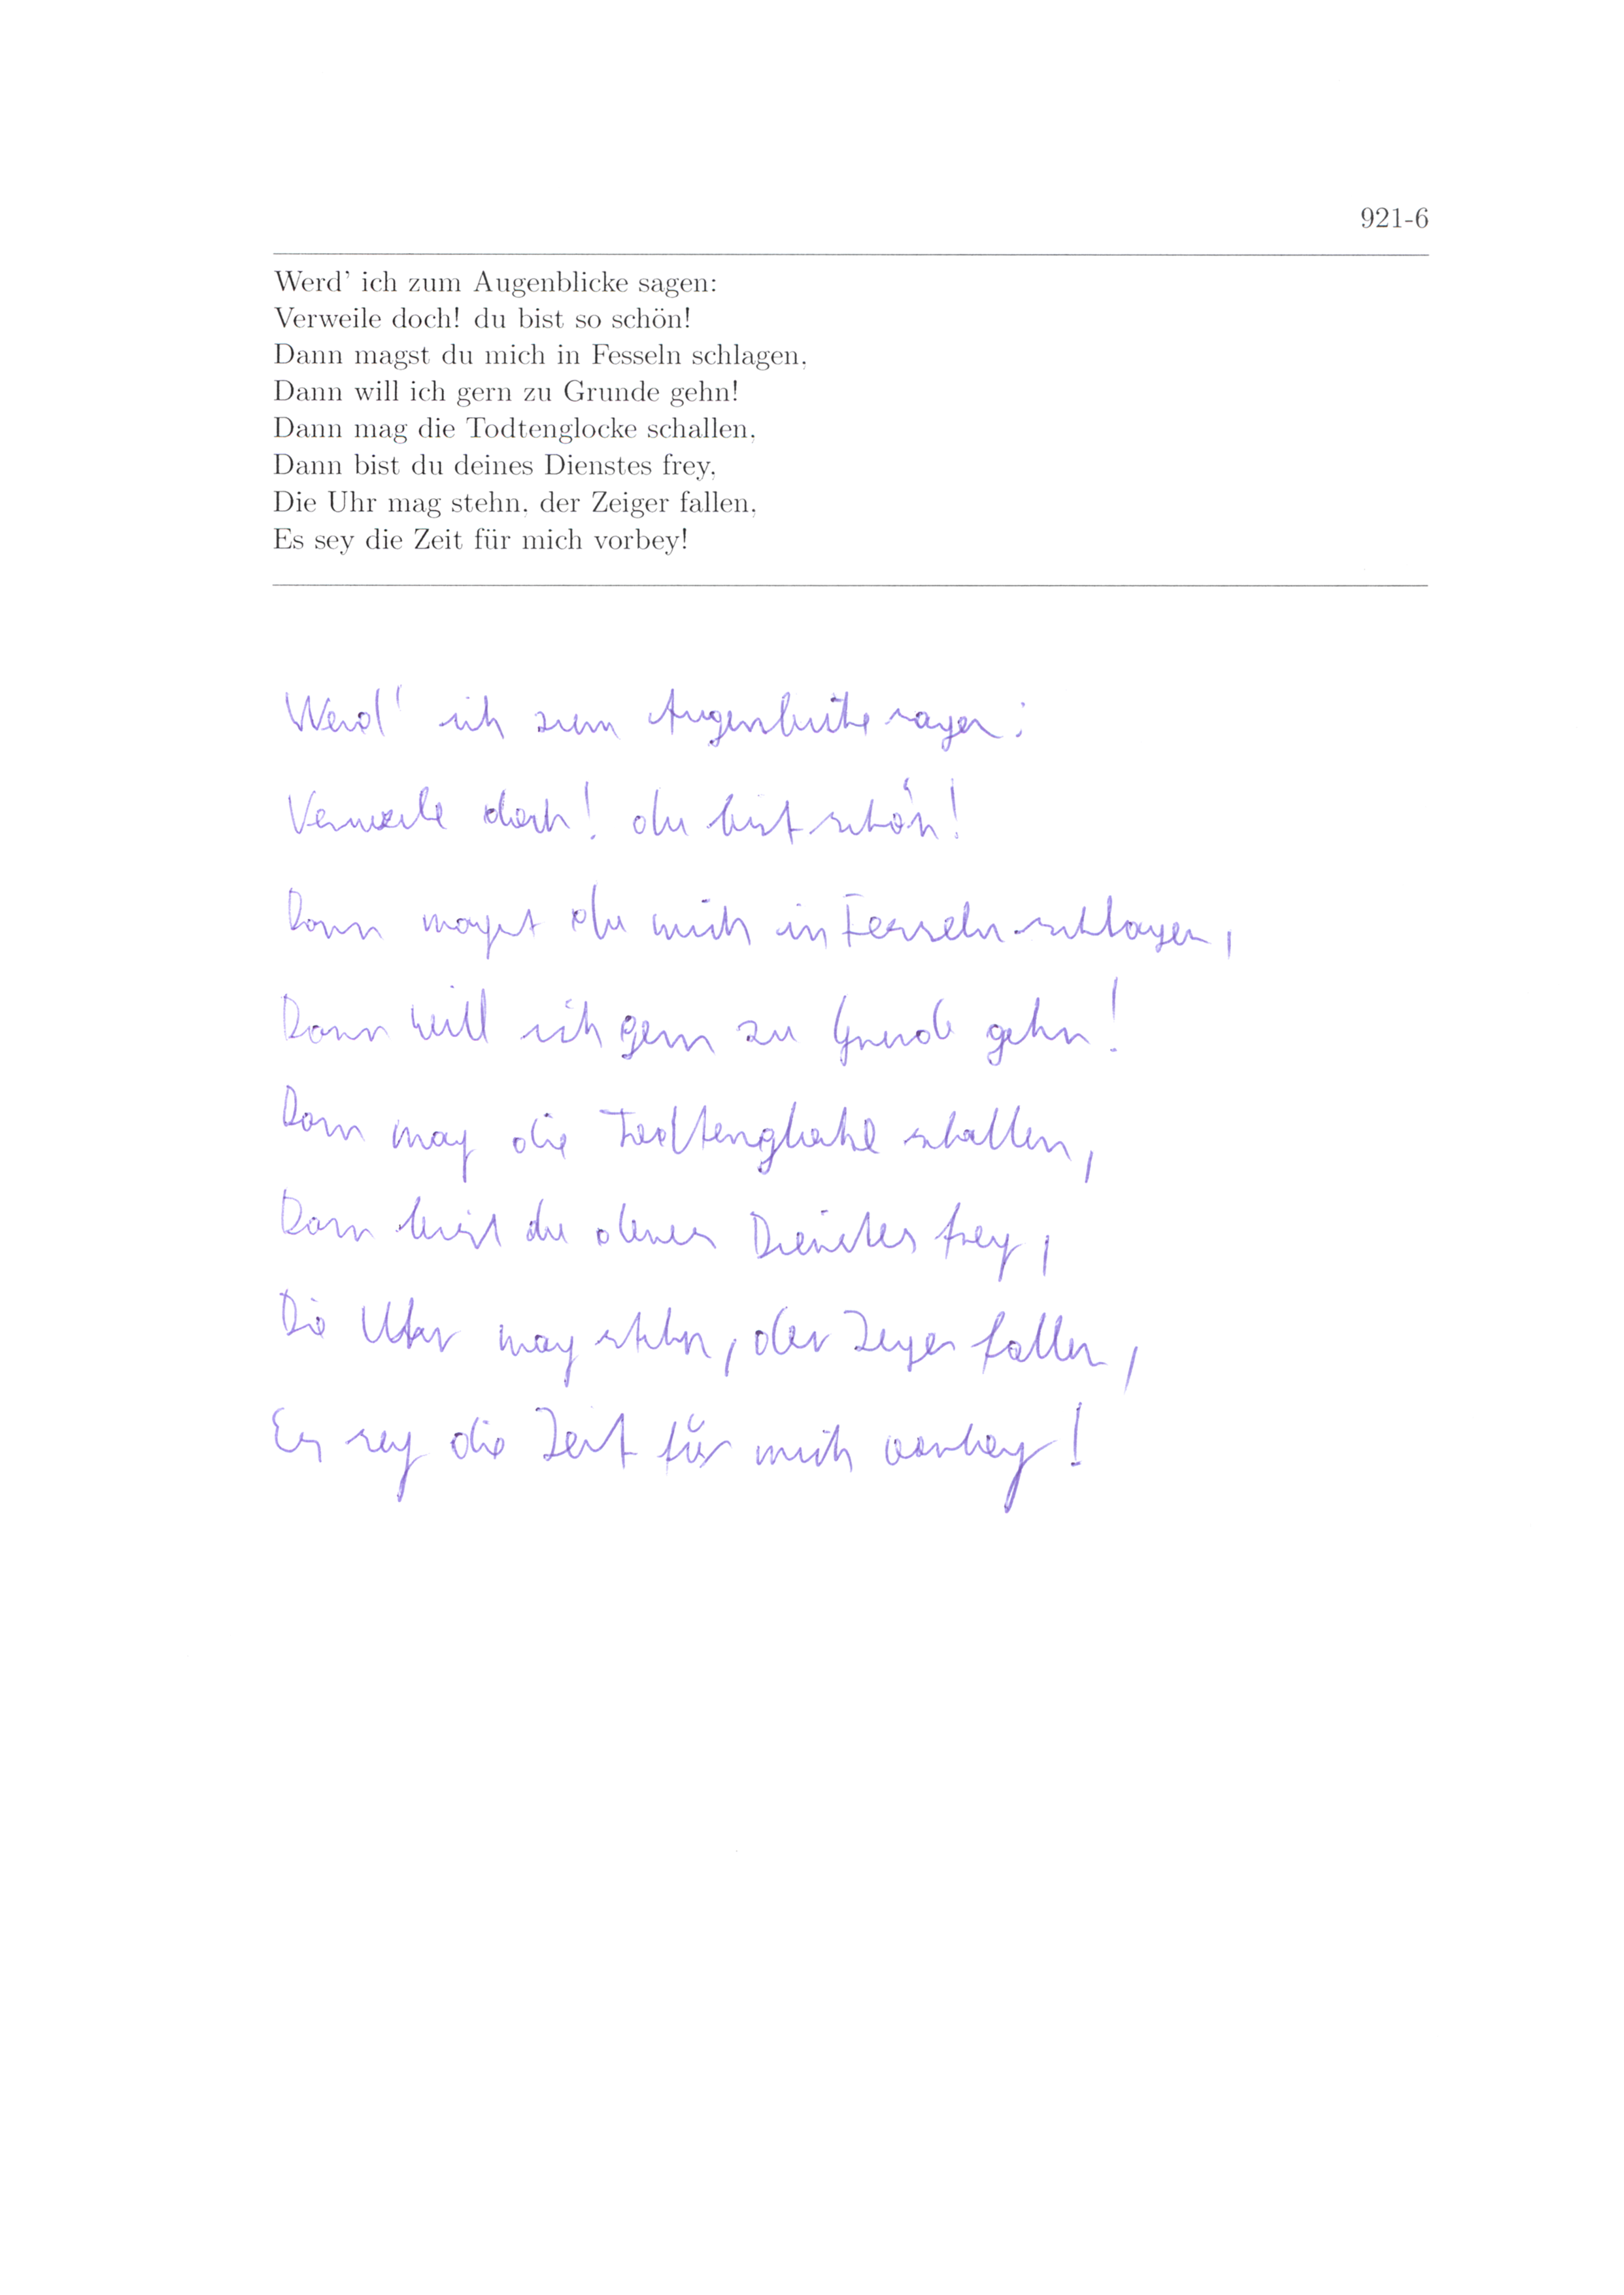 921-6
Werd' ich zum Augenblicke sagen:
Verweile doch! du bist so schön!
Dann magst du mich in Fesseln schlagen,
Dann will ich gern zu Grunde gehn!
Dann mag die Todtenglocke schallen,
Dann bist du deines Dienstes frey,
Die Uhr mag stehn, der Zeiger fallen,
Es sey die Zeit für mich vorbey!
Werd' ich zum Augenblicke sagen:
Verweile doch! du bist schön!
Dann magst du mich in Fesseln schlagen,
Dann will ich gern zu Grunde gehn!
Dann mag die Todtenglocke schallen,
Dann bist du deines Dienstes frey,
Die Uhr mag stehn, der Zeiger fallen,
Es sey die Zeit für mich vorbey!